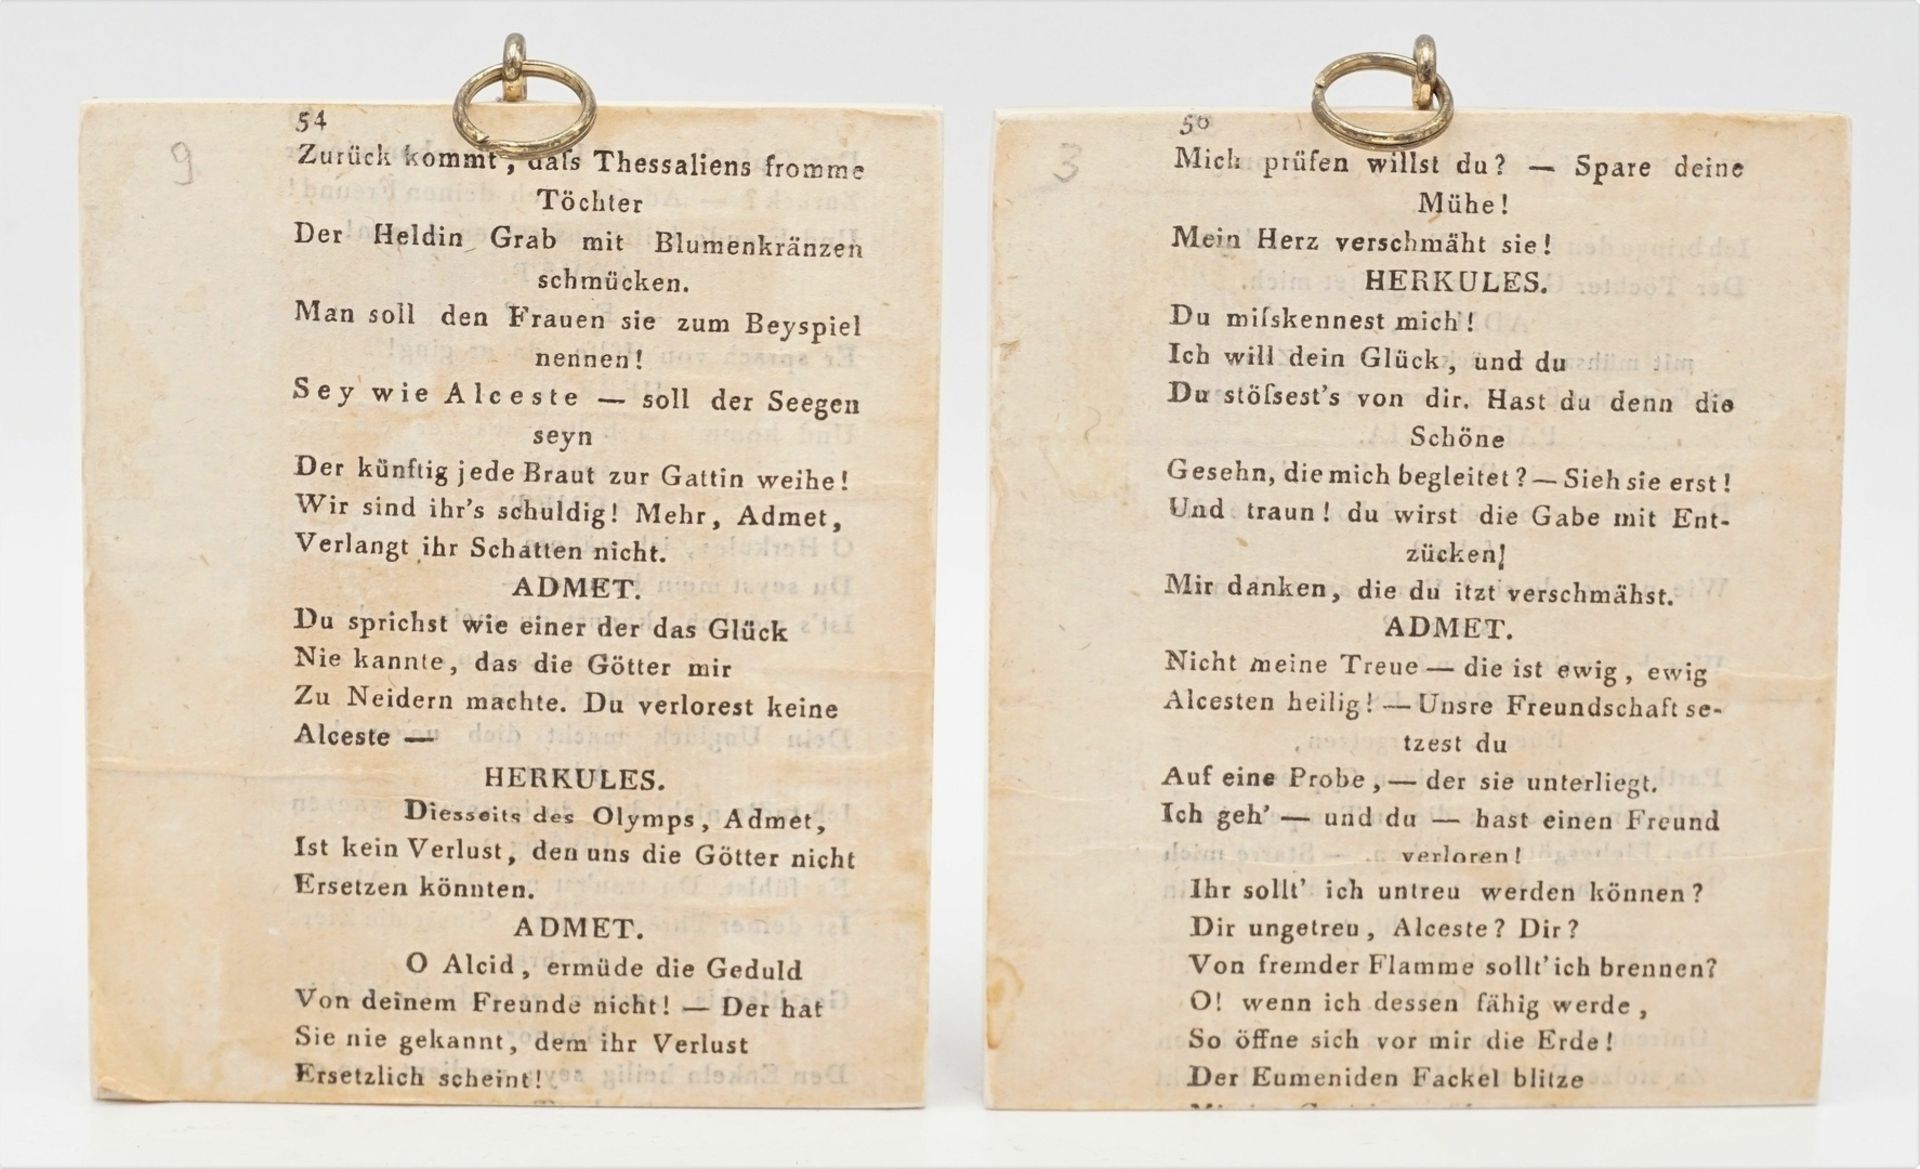 54
9
Zurück kommt, daſs Thessaliens fromme
Töchter
Der Heldin Grab mit Blumenkränzen
schmücken.
Man soll den Frauen sie zum Beyspiel
nennen!
Sey wie Alceste — soll der Seegen
seyn
Der künftig jede Braut zur Gattin weihe!
Wir sind ihr's schuldig! Mehr, Admet,
Verlangt ihr Schatten nicht.
ADMET.
Du sprichst wie einer der das Glück
Nie kannte, das die Götter mir
Zu Neidern machte. Du verlorest keine
Alceste —
HERKULES.
Diesseits des Olymps, Admet,
Ist kein Verlust, den uns die Götter nicht
Ersetzen könnten.
ADMET.
O Alcid, ermüde die Geduld
Von deinem Freunde nicht! — Der hat
Sie nie gekannt, dem ihr Verlust
Ersetzlich scheint!
56
3
Mich prüfen willst du? — Spare deine
Mühe!
Mein Herz verschmäht sie!
HERKULES.
Du miſskennest mich!
Ich will dein Glück, und du
Du stöſsest's von dir. Hast du denn die
Schöne
Gesehn, die mich begleitet? — Sieh sie erst!
Und traun! du wirst die Gabe mit Ent-
zücken,
Mir danken, die du itzt verschmähst.
ADMET.
Nicht meine Treue — die ist ewig, ewig
Alcesten heilig! — Unsre Freundschaft se-
tzest du
Auf eine Probe, — der sie unterliegt.
Ich geh' — und du — hast einen Freund
verloren!
Ihr sollt' ich untreu werden können?
Dir ungetreu, Alceste? Dir?
Von fremder Flamme sollt' ich brennen?
O! wenn ich dessen fähig werde,
So öffne sich vor mir die Erde!
Der Eumeniden Fackel blitze